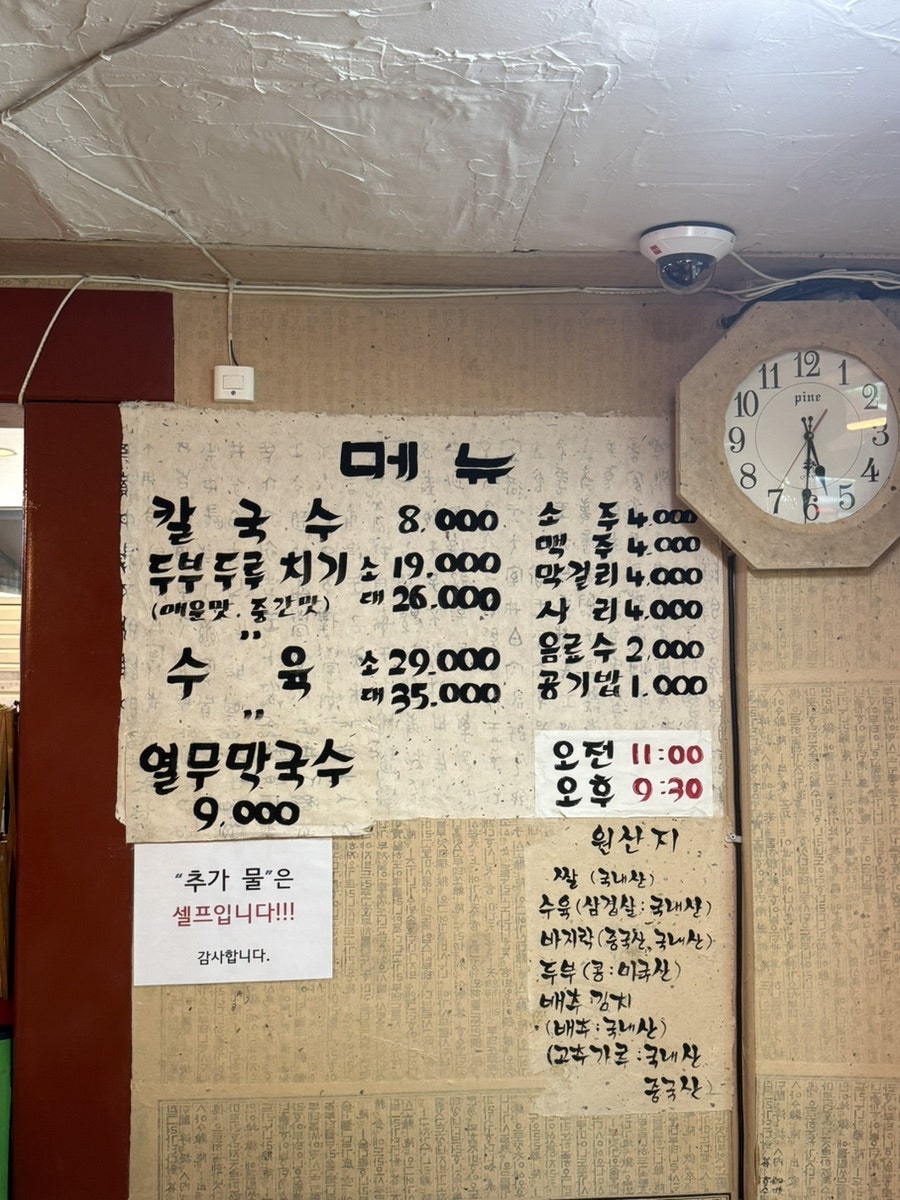 메뉴
칼국수 8.000
두부두루치기 소 19.000
(매운맛. 중간맛) 대 26.000
"
수육 소 29.000
대 35.000
"
열무막국수
9.000
소주 4.000
맥주 4.000
막걸리 4.000
사리 4.000
음료수 2.000
공기밥 1.000
오전 11:00
오후 9:30
원산지
쌀 (국내산)
수육 (삼겹살:국내산)
바지락 (중국산, 국내산)
두부 (콩:미국산)
배추김치
(배추:국내산)
(고추가루:국내산
중국산)
"추가 물"은
셀프입니다!!!
감사합니다.
pine
12
1
2
3
4
5
6
7
8
9
10
11